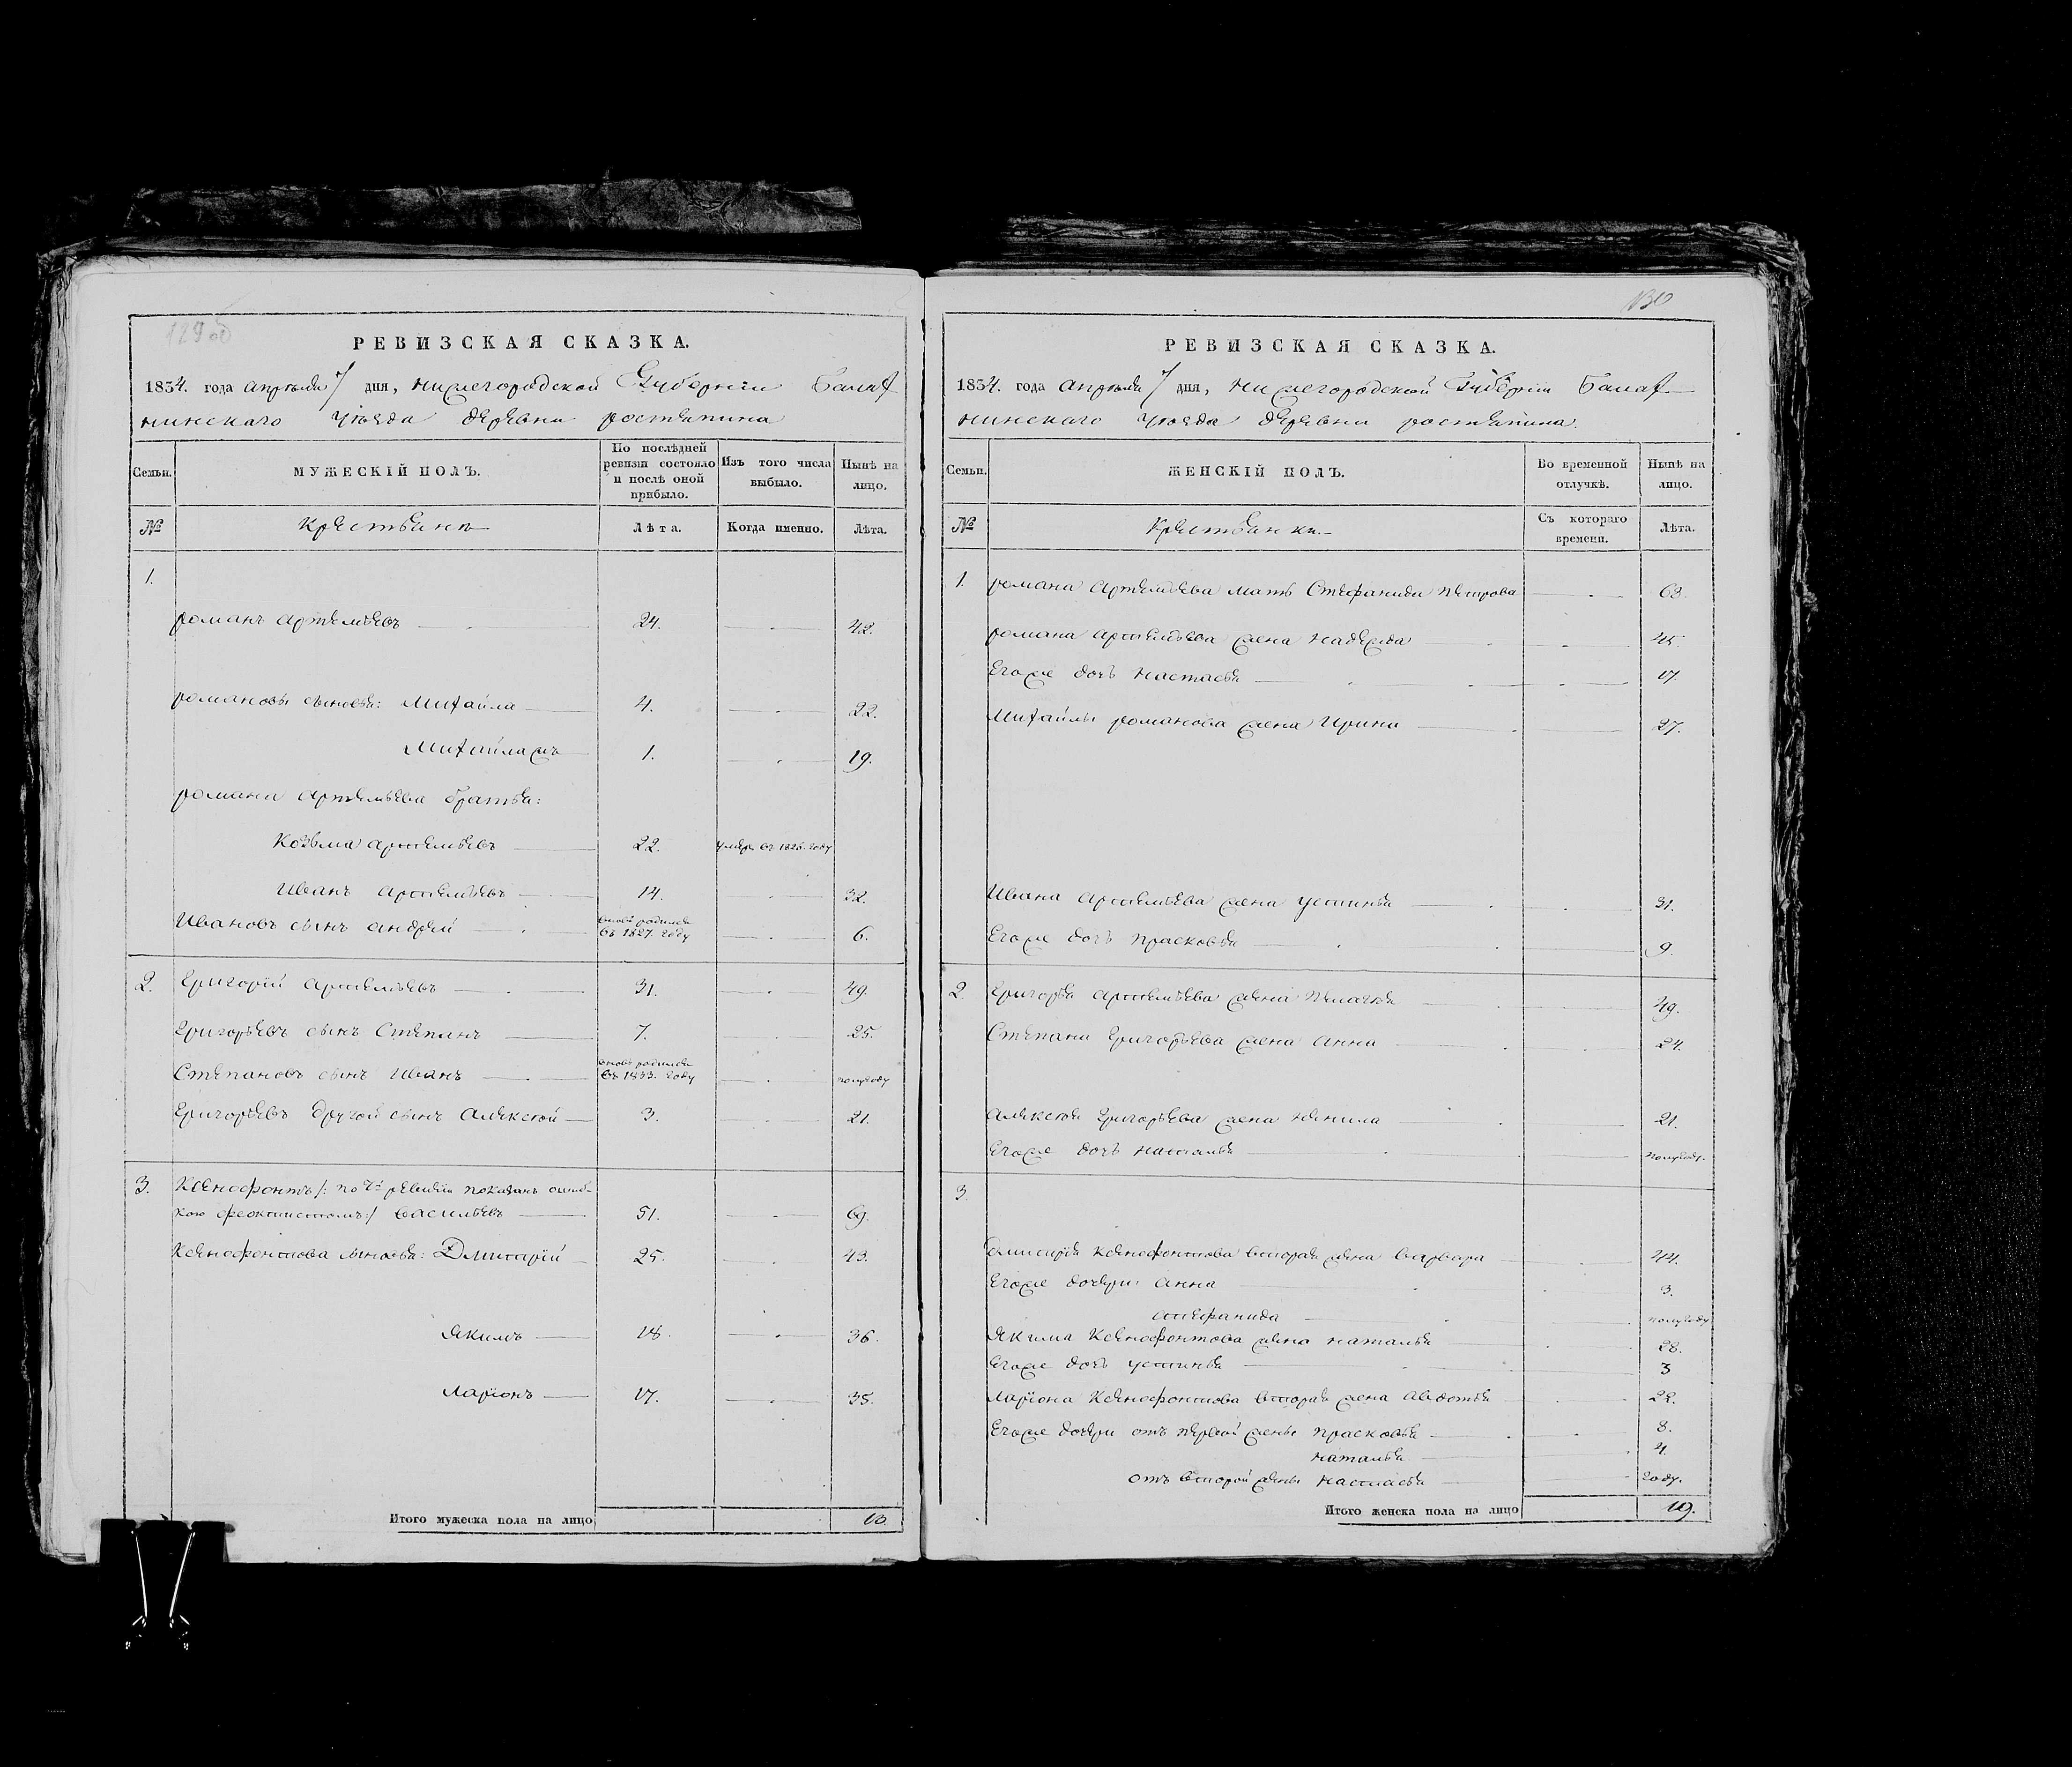 129 об
РЕВИЗСКАЯ СКАЗКА.
1834. года апреля 7 дня, нижегородской Губернии Балах
нинскаго уѣзда деревни ростяпина
Семьи.
МУЖЕСКІЙ ПОЛЪ.
По послѣдней ревизіи состояло и послѣ оной прибыло.
Изъ того числа выбыло.
Нынѣ на лицо.
№ крестьянъ Лѣта. Когда именно. Лѣта.
1.
романъ артемьевъ 24. 42.
романовы сыновья: Михайла 4. 22.
Михайла жъ 1. 19.
романа артемьева братья:
Козьма артемьевъ 22. умеръ въ 1826. году
Иванъ артемьевъ 14. 32.
Ивановъ сынъ андрей вновь родился въ 1827. году 6.
2. Григорій артемьевъ 31. 49.
Григорьевъ сынъ Степанъ 7. 25.
Степановъ сынъ Иванъ вновь родился въ 1833. году полугоду
Григорьевъ другой сынъ алексей 3. 21.
3. Ксенофонтъ /: по 7й ревизіи показанъ ошиб-
кою феоктистомъ:/ васильевъ 51. 69.
Ксенофонтова сыновья: Дмитрій 25. 43.
якимъ 18. 36.
ларіонъ 17. 35.
Итого мужеска пола на лицо 13.
130
РЕВИЗСКАЯ СКАЗКА.
1834. года апреля 7 дня, нижегородской Губерніи Балах
нинскаго уѣзда деревни ростяпина.
Семьи.
ЖЕНСКІЙ ПОЛЪ.
Во временной отлучкѣ.
Нынѣ на лицо.
№ Крестьянки. Съ котораго времени. Лѣта.
1. романа артемьева мать Стефанида петрова 68.
романа артемьева жена надежда 45.
Егоже дочь настасья 17.
Михайлы романова жена Ирина 27.
Ивана артемьева жена устинья 31.
Егоже дочь прасковья 9.
2. Григорья артемьева жена пелагея 49.
Степана Григорьева жена анна 24.
алексея Григорьева жена ненила 21.
Егоже дочь наталья полугоду.
3.
дмитрія Ксенофонтова вторая жена варвара 44.
Егоже дочери: анна 3.
стефанида полугоду
якима Ксенофонтова жена наталья 28.
Егоже дочь устинья 3
ларіона Ксенофонтова вторая жена авдотья 22.
Егоже дочери отъ первой жены прасковья 8.
наталья 4.
отъ второй жены настасья году.
Итого женска пола на лицо 19.